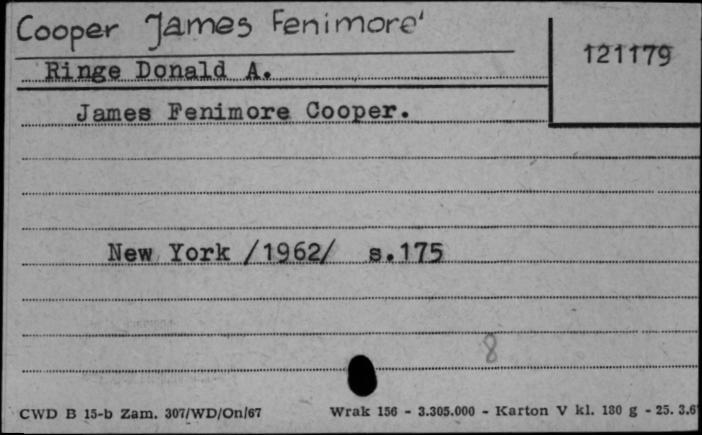 Cooper James Fenimore'
121179
Ringe Donald A.
James Fenimore Cooper.
New York /1962/ s.175
8
CWD B 15-b Zam. 307/WD/On/67 Wrak 156 - 3.305.000 - Karton V kl. 180 g - 25. 3.6